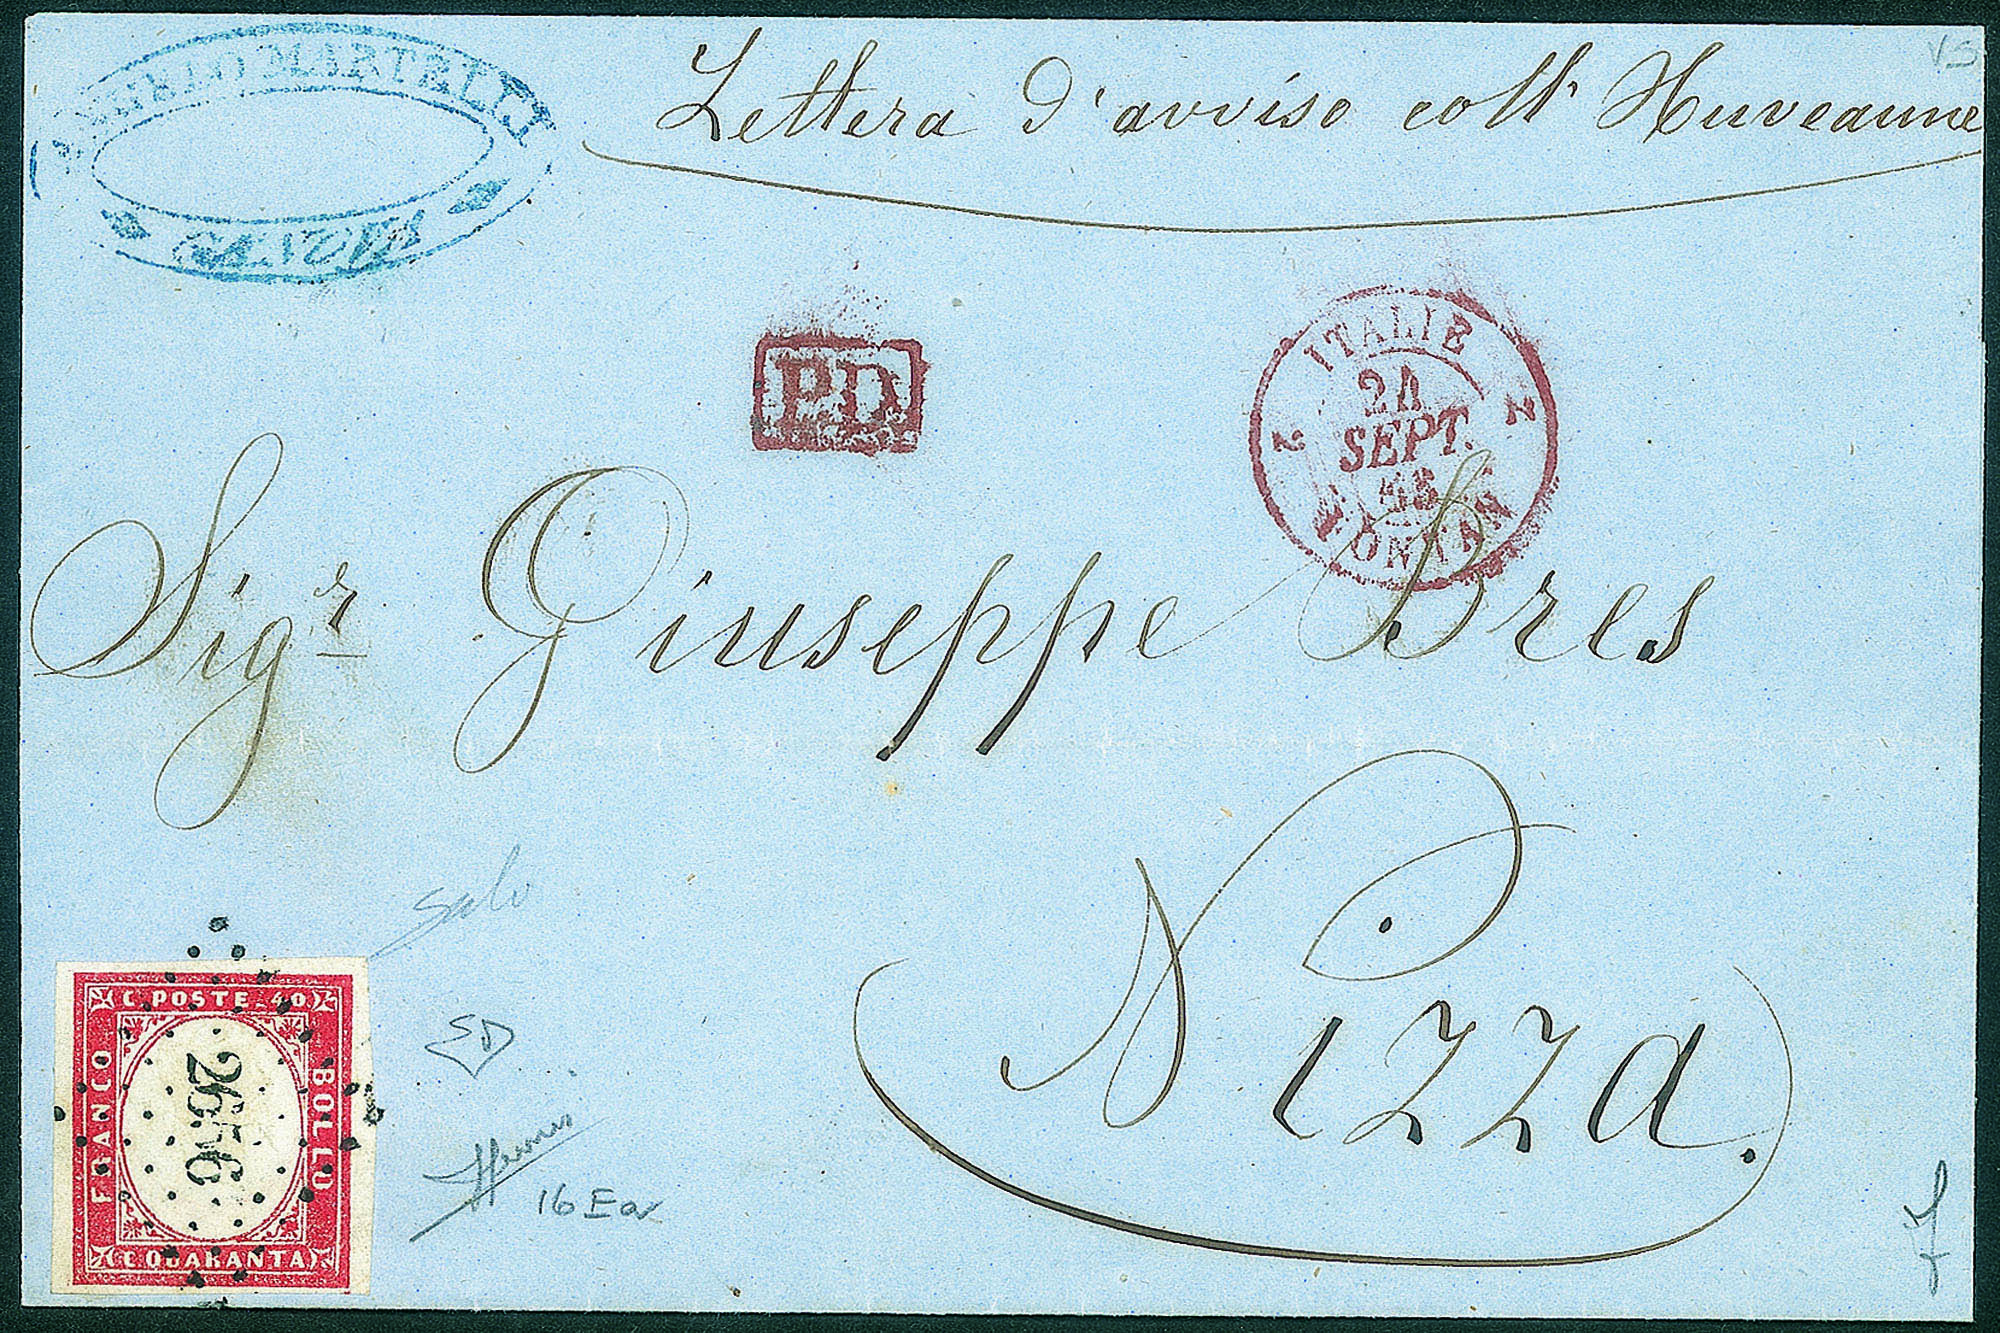 MARTELLI
Lettera d'avviso coll' Huveaune
VS
P.D.
ITALIE
2 2
SEPT.
Sigr Giuseppe Bres
Nizza.
C. POSTE 40
FRANCO
BOLLO
2656
C QUARANTA
SD
16 Ea